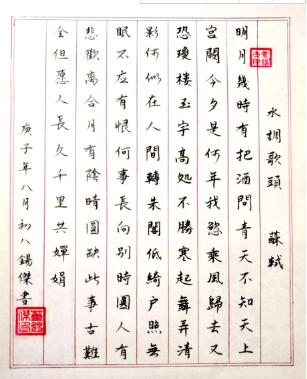 水調歌頭 蘇軾
明月幾時有把酒問青天不知天上
宮闕今夕是何年我慾乘風歸去又
恐瓊樓玉宇高処不勝寒起舞弄清
影何似在人間轉朱閣低綺户照無
眠不应有恨何事長向别時圓人有
悲歡離合月有陰晴圓缺此事古難
全但愿人長久千里共嬋娟
庚子年八月初八錫傑書